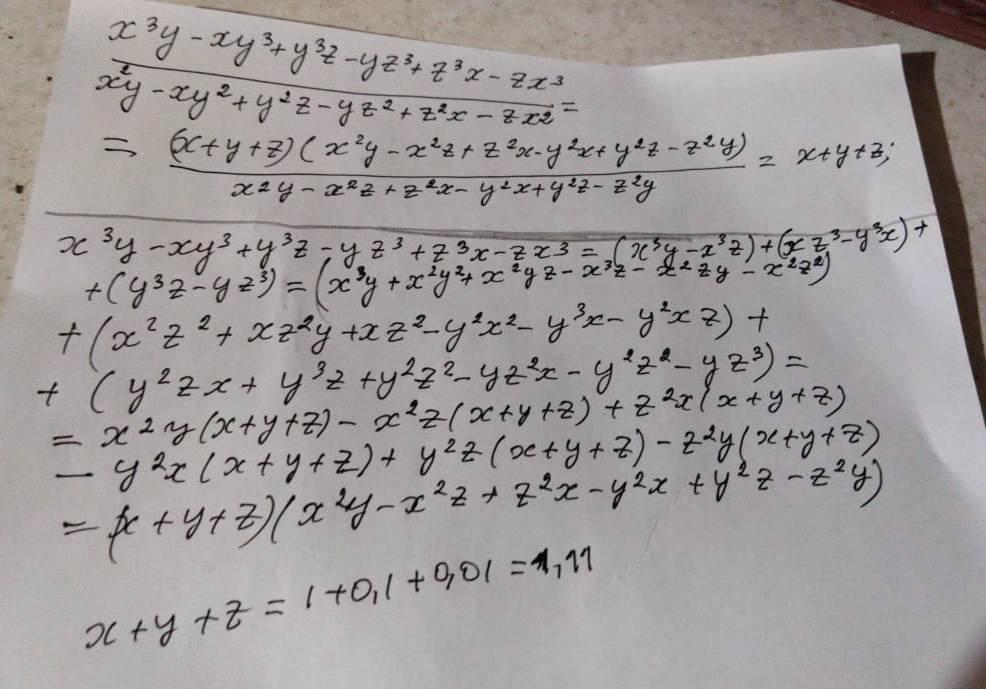 x³y - xy³ + y³z - yz³ + z³x - zx³
x²y - xy² + y²z - yz² + z²x - zx2 =
= (x+y+z)(x²y - x²z + z²x - y²x + y²z - z²y) = x+y+z;
x2y - x²z + z²x - y²x + y²z - z²y
x³y - xy³ + y³z - yz³ + z³x - zx3 = (x³y - x³z) + (xz³ - y³x) +
+ (y³z - yz³) = (x³y + x²y² + x²yz - x³z - x²zy - x²z²)
+ (x²z² + xz²y + xz² - y²x² - y³x - y²xz) +
+ (y²zx + y³z + y²z² - yz²x - y²z² - yz³) =
= x²y(x+y+z) - x²z(x+y+z) + z²x(x+y+z)
- y²x(x+y+z) + y²z(x+y+z) - z²y(x+y+z)
= (x+y+z)(x²y - x²z + z²x - y²x + y²z - z²y)
x+y+z = 1+0,1+0,01 = 1,11